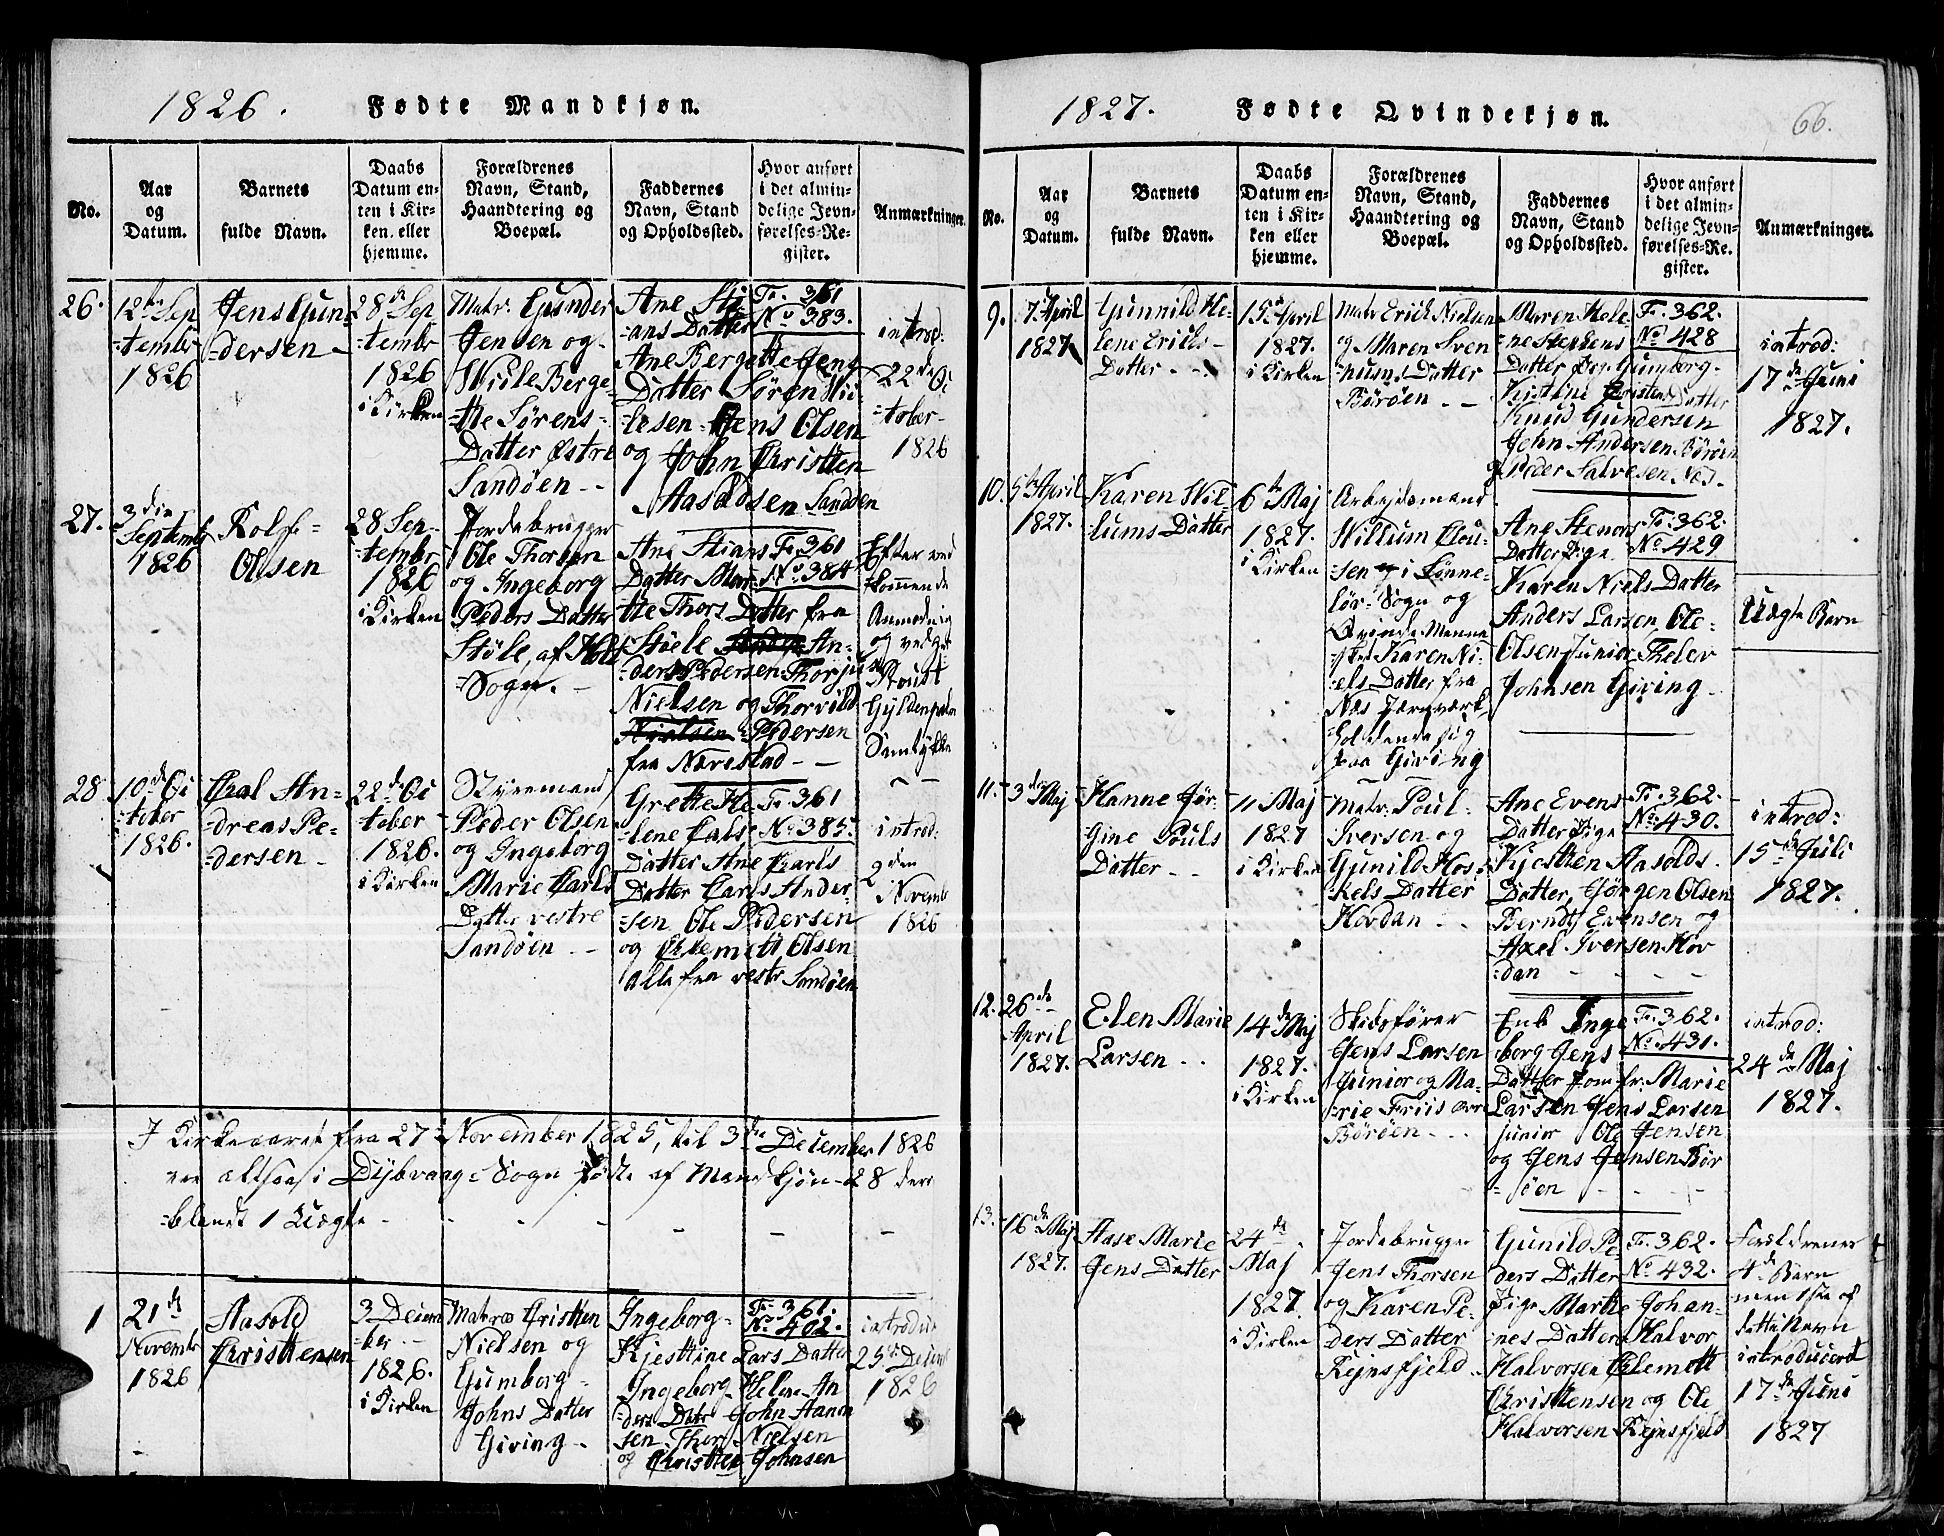 1826. Fødte Mandkjøn.
No.
Aar
og
Datum.
Barnets
fulde Navn.
Daabs
Datum en-
ten i Kir-
ken eller
hjemme.
Forældrenes
Navn, Stand,
Haandtering og
Boepæl.
Faddernes
Navn, Stand
og Opholdssted.
Hvor anført
i det almin-
delige Jevn-
førelses-Re-
gister.
Anmærkninger.
26.
12te Sep
-tembr
1826
Jens Gun-
-dersen
28de Sep
-tembr
1826
i Kirken
Matr. Gunder
Jensen og
Wiile Berge-
-tte Sørens-
Datter Østre
Sandøen
Ane Sti-
-ans Datter
Ane Bergette Jens
Datter Søren Wii-
lesen Jens Olsen
og John Christen
Aasoldsen Sandøen
Fr. 361
No 383.
introd:
22de Oc
-tober
1826
27.
3die
Septembr
1826
Rolf
Olsen
28 Sep-
-tembr
1826
i Kirken
Jordebrugger
Ole Thorsen
og Ingeborg
Peders Datter
Støle, af Holt
Sogn.
Ane Stians
Datter Mar-
-the Thors Datter fra
Støele An-
-ders Pedersen Thorje
Nielsen og Thorvild
Pedersen
fra Narestad
Fr. 361
No 384
Efter ved
-kommende
Anmodnig
og vedgr
Provst
Gyldenpalm
Samtykke
28
10de Oc
-tober
1826.
Carl An-
-dreas Pe-
-dersen
22de Oc
-tober
1826.
i Kirken
Styremand
Peder Olsen
og Ingeborg
Marie Carls
Datter vestre
Sandøen
Grethe He-
-lene Carls
Datter Ane Carls
Datter Carl Ander-
-sen Ole Pedersen
og Clemet Olsen
alle fra vestr Sandøen
Fr. 361
No 385
introd:
2den
Novemb
1826
I Kirkeaaret fra 27de November 1825, til 3die December 1826
er altsaa i Dybvaag Sogn fødte af Mandkjøn 28 der-
-blandt 1 Uægte
1
21de
Novembr
1826
Aasold
Christensen
3 Decem
-ber
1826.
i Kirken
Matros Christen
Nielsen og
Gumborg
Johns Datter
Giving
Ingeborg
Kjestine Lars Datter
Ingeborg Helene An
-ders Datr John Aanon
sen Thor Nielsen
og Christen Johnsen
Fr. 361.
No. 402.
introdu:
25de Decemb
1826
1827. Fødte Qvindekjøn. 66.
No.
Aar
og
Datum.
Barnets
fulde Navn.
Daabs
Datum en-
ten i Kir-
ken eller
hjemme.
Forældrenes
Navn, Stand,
Haandtering og
Boepæl.
Faddernes
Navn, Stand
og Opholdssted.
Hvor anført
i det almin-
delige Jevn-
førelses-Re-
gister.
Anmærkninger.
9.
7de April
1827
Gunnild He-
lene Erichs
Datter
15de April
1827.
i Kirken
Matr Erich Nielsen
og Maren Sven
Datter
Børøen
Maren Hele-
-ne Stephens
Datter Pige Gumborg
Kirstine Christens Datter
Knud Gundersen
John Andersen Børøen
og Peder Salvesen Næs
Fr. 362.
No 428
introd:
17de Juni
1827.
10.
5te April
1827.
Karen Wil-
lums Datter
6te Maj
1827.
i Kirken
Arbejdsmand
Willum Clou-
sen i Lønne-
Sogn og
Qvinde Menne
-sket Karen Ni-
els Datter fra
Næs Jernværk
holdende sig
paa Giving
Ane Stenors
Datter Pige
Karen Niels Datter
Anders Larsen, Ole
Olsen Junior Thelev
Johnsen Giving
Fr. 362.
No 429
Uægte Barn
11.
3die Maj
Hanne Jør-
gine Pouls
Datter
11 Maj
1827
i Kirken
Matr. Poul
Iversen og
Gunild Hos-
kels Datter
Hovdan
Ane Evens
Datter Pige
Kjesten Aasolds
Datter, Jørgen Olsen
Berndt Evensen og
Axel Iversen Hov
-dan
Fr. 362.
No. 430.
introd:
15de Juli
1827.
12.
26de
April
1827.
Elen Marie
Larsen
14de Maj
1827.
i Kirken
Skibsfører
Jens Larsen
Junior og Ma-
-rie Friis
Børøen
Enk Inge
borg Jens
Datter Jomfr: Marie
Larsen Jens Larsen
junior Ole Jensen
og Jens Jensen Bør
-øen
Fr. 362.
No. 431.
introd:
24de Maj
1827.
13.
16de Maj
1827.
Aase Marie
Jens Datter
24de
Maj
1827
i Kirken
Jordebrugger
Jens Thorsen
og Karen Pe-
ders Datter
Rejnsfjeld
Gunild Pe-
ders Datter
Pige Marthe Johan-
-nes Datter Halvor
Halvorsen Clemett
Christensen og Ole
Halvorsen Rejnsfjeld
Fr. 362.
No. 432.
Foreldrenes
4de Barn
men 1ste af
dette Navn
introduceret
17de Juni
1827